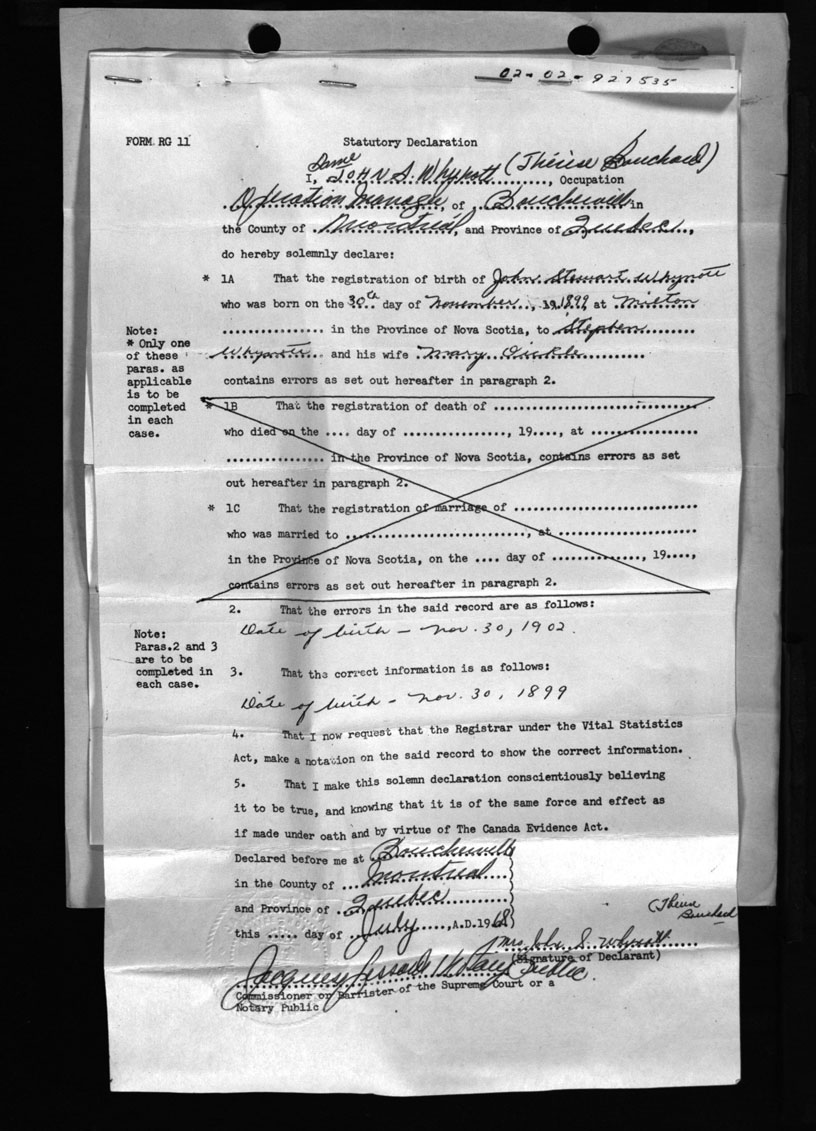 02-02-927535
FORM RG 11
Statutory Declaration
Dame (Thérèse Bouchard)
I, JOHN S. Whynott, Occupation
Operation Manager, of Boucherville in
the County of Montréal, and Province of Quebec,
do hereby solemnly declare:
* 1A That the registration of birth of John Stewart Whynott
who was born on the 30th day of November, 19 1899, at Milton
in the Province of Nova Scotia, to Stephen
Whynott and his wife Mary
contains errors as set out hereafter in paragraph 2.
Note:
* Only one
of these
paras. as
applicable
is to be
completed
in each
case.
* 1B That the registration of death of ........
who died on the .... day of ........, 19...., at ........
........ in the Province of Nova Scotia, contains errors as set
out hereafter in paragraph 2.
* 1C That the registration of marriage of ........
who was married to ........, at ........
in the Province of Nova Scotia, on the .... day of ........, 19....,
contains errors as set out hereafter in paragraph 2.
2. That the errors in the said record are as follows:
Date of birth - Nov. 30, 1902.
Note:
Paras.2 and 3
are to be
completed in
each case.
3. That the correct information is as follows:
Date of birth - Nov. 30, 1899
4. That I now request that the Registrar under the Vital Statistics
Act, make a notation on the said record to show the correct information.
5. That I make this solemn declaration conscientiously believing
it to be true, and knowing that it is of the same force and effect as
if made under oath and by virtue of The Canada Evidence Act.
Declared before me at Boucherville
in the County of Montreal
and Province of Quebec
this ..... day of July, A.D.1968
(Thérèse Bouchard)
Mrs John S. Whynott
(Signature of Declarant)
Jacques Notary Public.
Commissioner or Barrister of the Supreme Court or a
Notary Public